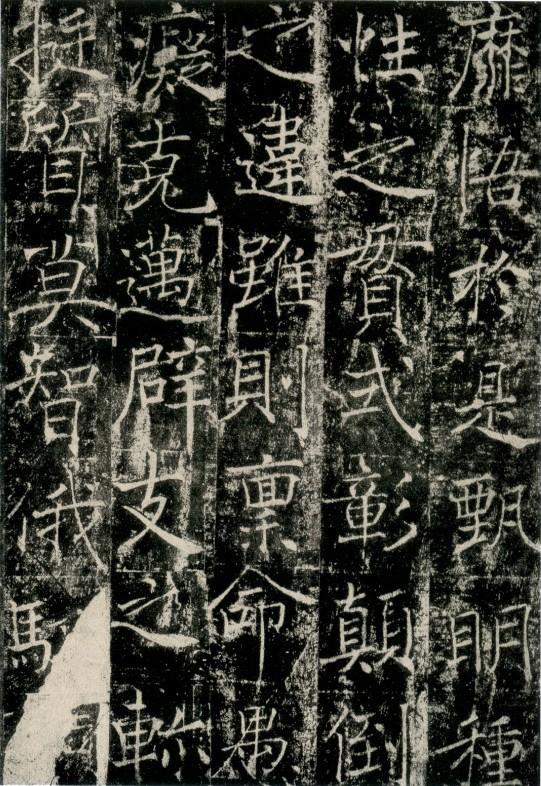 靡悟於是甄明種
性之實式彰顛倒
之違雖則稟命愚
癡克邁辟支之軫
挺質莫智俄